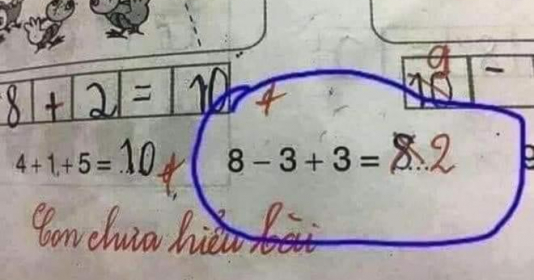 9
8 + 2 = 10 10 -
4 + 1 + 5 = 10 8 – 3 + 3 = 8 2
Con chưa hiểu bài